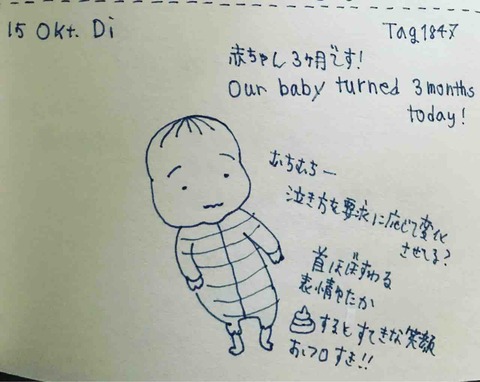 15 Okt. Di
Tag1847
赤ちゃん3ヶ月です!
Our baby turned 3 months
today!
むちむちー
泣き方を要求に応じて変化
させてる?
首ほぼすわる
表情ゆたか
するとすてきな笑顔
おフロすき!!